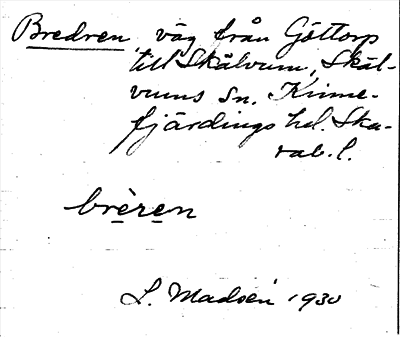 Bredren, väg från Göttorp
till Skälvum, Skäl-
vums Sn. Kinne-
fjärdings hd. Ska-
rab. l.
brèren
L. Madsén 1930